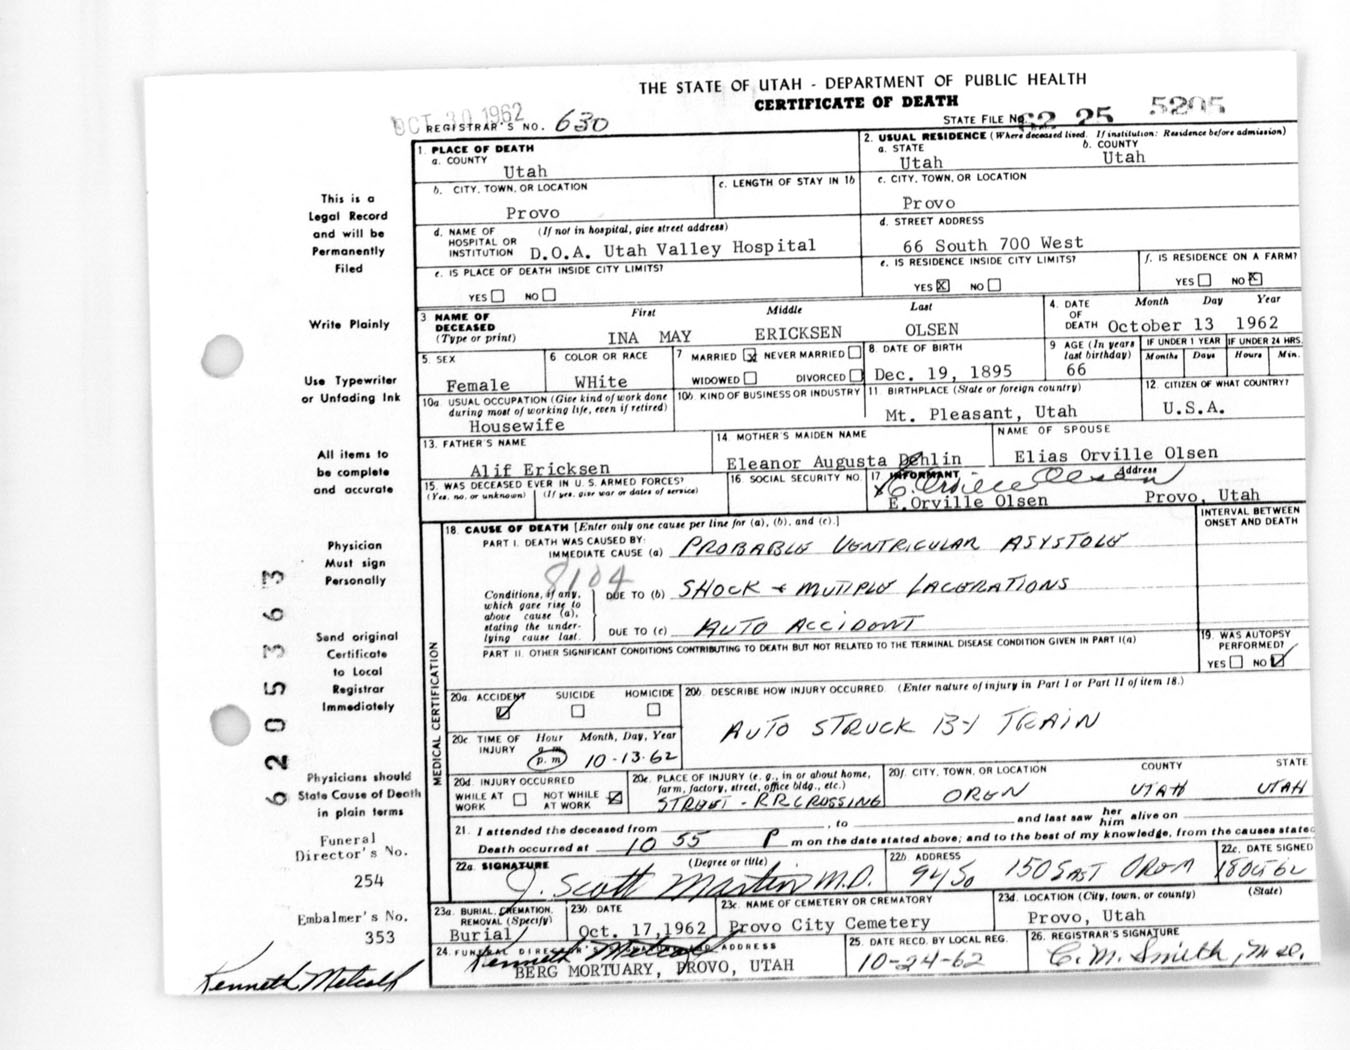 THE STATE OF UTAH - DEPARTMENT OF PUBLIC HEALTH
CERTIFICATE OF DEATH
OCT 30 1962
REGISTRAR'S NO. 630
STATE FILE No. 62 25 5205
This is a
Legal Record
and will be
Permanently
Filed
Write Plainly
Use Typewriter
or Unfading Ink
All items to
be complete
and accurate
Physician
Must sign
Personally
Send original
Certificate
to Local
Registrar
Immediately
Physicians should
State Cause of Death
in plain terms
Funeral
Director's No.
254
Embalmer's No.
353
Kenneth Metcalf
62053363
1. PLACE OF DEATH
a. COUNTY
Utah
2. USUAL RESIDENCE (Where deceased lived. If institution: Residence before admission)
a. STATE b. COUNTY
Utah Utah
b. CITY, TOWN, OR LOCATION
Provo
c. LENGTH OF STAY IN 1b
c. CITY, TOWN, OR LOCATION
Provo
d. NAME OF HOSPITAL OR INSTITUTION (If not in hospital, give street address)
D.O.A. Utah Valley Hospital
d. STREET ADDRESS
66 South 700 West
e. IS PLACE OF DEATH INSIDE CITY LIMITS?
YES NO
e. IS RESIDENCE INSIDE CITY LIMITS?
YES X NO
f. IS RESIDENCE ON A FARM?
YES NO X
3 NAME OF DECEASED (Type or print)
First Middle Last
INA MAY ERICKSEN OLSEN
4. DATE OF DEATH Month Day Year
October 13 1962
5. SEX
Female
6 COLOR OR RACE
WHite
7 MARRIED X NEVER MARRIED
WIDOWED DIVORCED
8. DATE OF BIRTH
Dec. 19, 1895
9 AGE (In years last birthday)
66
IF UNDER 1 YEAR Months Days
IF UNDER 24 HRS. Hours Min.
10a USUAL OCCUPATION (Give kind of work done during most of working life, even if retired)
Housewife
10b. KIND OF BUSINESS OR INDUSTRY
11 BIRTHPLACE (State or foreign country)
Mt. Pleasant, Utah
12. CITIZEN OF WHAT COUNTRY?
U.S.A.
13. FATHER'S NAME
Alif Ericksen
14. MOTHER'S MAIDEN NAME
Eleanor Augusta Dehlin
NAME OF SPOUSE
Elias Orville Olsen
15. WAS DECEASED EVER IN U. S. ARMED FORCES?
(Yes, no, or unknown) (If yes, give war or dates of service)
16. SOCIAL SECURITY NO.
17 INFORMANT Address
x E. Orville Olsen
E.Orville Olsen Provo, Utah
MEDICAL CERTIFICATION
18. CAUSE OF DEATH [Enter only one cause per line for (a), (b), and (c).]
INTERVAL BETWEEN ONSET AND DEATH
PART I. DEATH WAS CAUSED BY:
IMMEDIATE CAUSE (a) PROBABLE VENTRICULAR ASYSTOLE
8104
Conditions, if any, which gave rise to above cause (a), stating the underlying cause last.
DUE TO (b) SHOCK + MUTIPLE LACERATIONS
DUE TO (c) AUTO ACCIDENT
PART II. OTHER SIGNIFICANT CONDITIONS CONTRIBUTING TO DEATH BUT NOT RELATED TO THE TERMINAL DISEASE CONDITION GIVEN IN PART I(a)
19. WAS AUTOPSY PERFORMED?
YES NO ✓
20a. ACCIDENT SUICIDE HOMICIDE
✓
20b. DESCRIBE HOW INJURY OCCURRED. (Enter nature of injury in Part I or Part II of item 18.)
AUTO STRUCK BY TRAIN
20c. TIME OF INJURY Hour Month, Day, Year
a. m.
p. m 10-13-62
20d. INJURY OCCURRED
WHILE AT WORK NOT WHILE AT WORK ✓
20e. PLACE OF INJURY (e. g., in or about home, farm, factory, street, office bldg., etc.)
STREET - RR CROSSING
20f. CITY, TOWN, OR LOCATION COUNTY STATE
OREM UTAH UTAH
21. I attended the deceased from , to and last saw her him alive on
Death occurred at 10 55 P m on the date stated above; and to the best of my knowledge, from the causes stated
22a. SIGNATURE (Degree or title)
J. Scott Martin M.D.
22b. ADDRESS
94 So 150 East Orem
22c. DATE SIGNED
18 Oct 62
23a. BURIAL, CREMATION, REMOVAL (Specify)
Burial
23b. DATE
Oct. 17,1962
23c. NAME OF CEMETERY OR CREMATORY
Provo City Cemetery
23d. LOCATION (City, town, or county) (State)
Provo, Utah
24. FUNERAL DIRECTOR'S SIGNATURE AND ADDRESS
Kenneth Metcalf
BERG MORTUARY, PROVO, UTAH
25. DATE RECD. BY LOCAL REG.
10-24-62
26. REGISTRAR'S SIGNATURE
C. M. Smith, M.D.